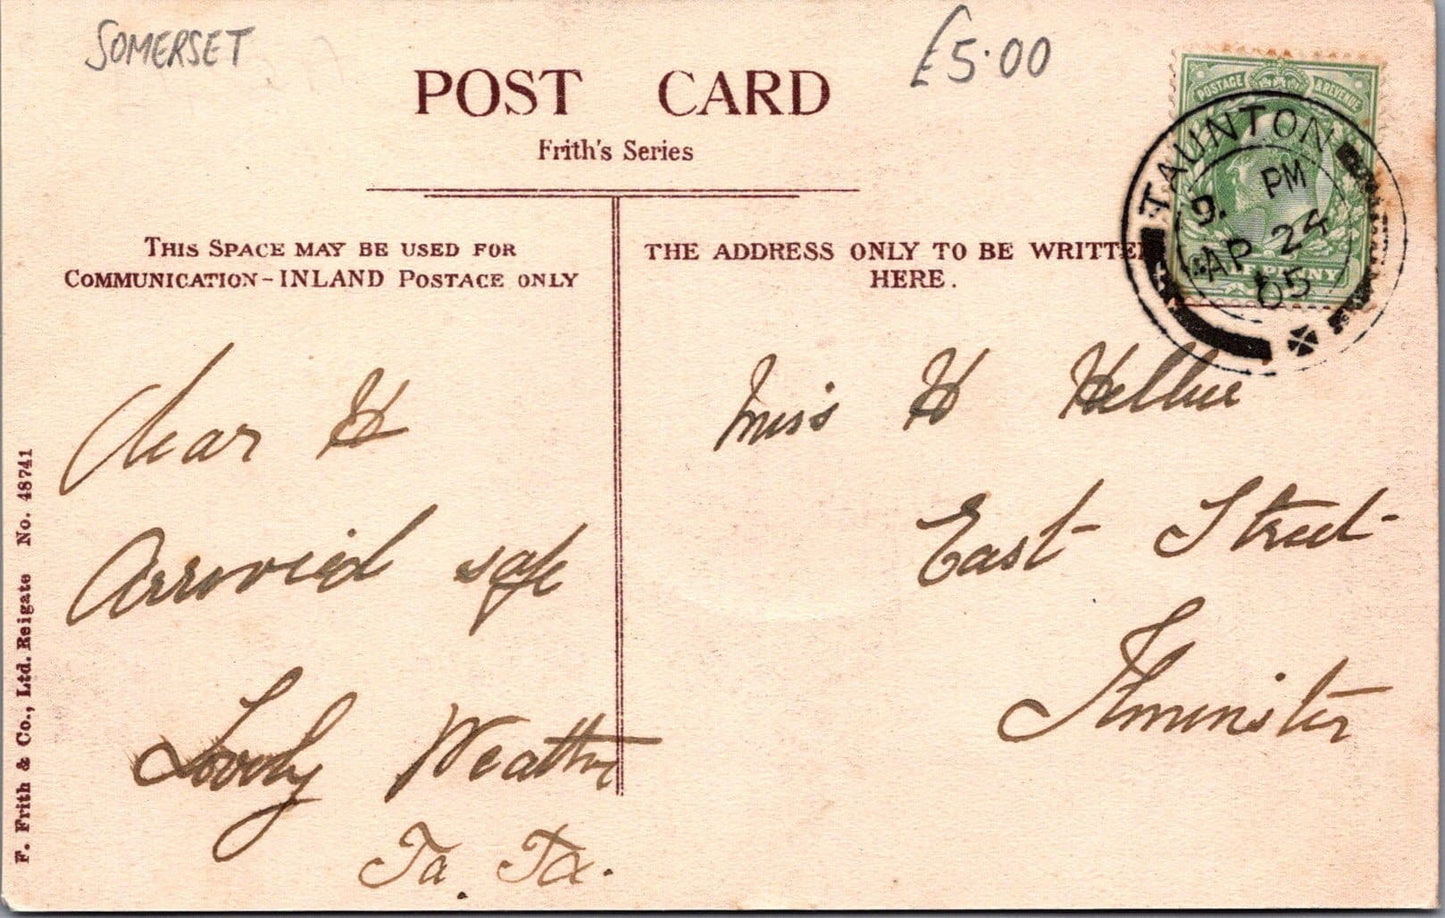 SOMERSET
£5.00
POST CARD
Frith's Series
POSTAGE & REVENUE
TAUNTON
9. PM
AP 24
05
THIS SPACE MAY BE USED FOR
COMMUNICATION - INLAND POSTAGE ONLY
THE ADDRESS ONLY TO BE WRITTEN
HERE.
Dear H
Arrovied safe
Lovely Weather
Ta. Ta.
Miss H Hellier
East Street
Ilminster
F. Frith & Co., Ltd. Reigate No. 48741